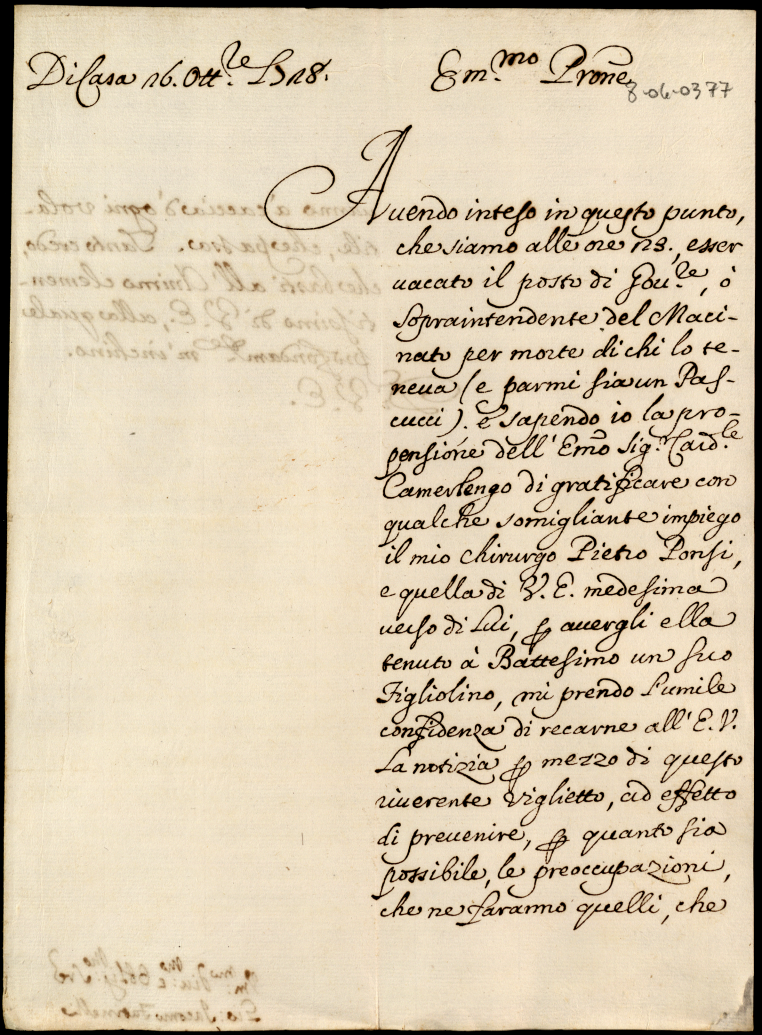 Di Casa 16. Ott.re 1718.
Em.mo Prone
8-06-0377
Auendo inteso in questo punto,
che siamo alle ore 23., esser
uacato il posto di Gou.le, ò
Sopraintendente del Maci-
nato per morte di chi lo te-
neua (e parmi sia un Pas-
cucci). e sapendo io la pro-
pensione dell' Emo Sig.r Card.le
Camerlengo di gratificare con
qualche somigliante impiego
il mio chirurgo Pietro Ponsi,
e quella di V. E. medesima
uerso di Lui, p auergli ella
tenuto à Battesimo un suo
Figliolino, mi prendo l'umile
confidenza di recarne all' E. V.
La notizia p mezzo di questo
riuerente viglietto, ad effetto
di preuenire, p quanto sia
possibile, le preoccupazioni,
che ne faranno quelli, che